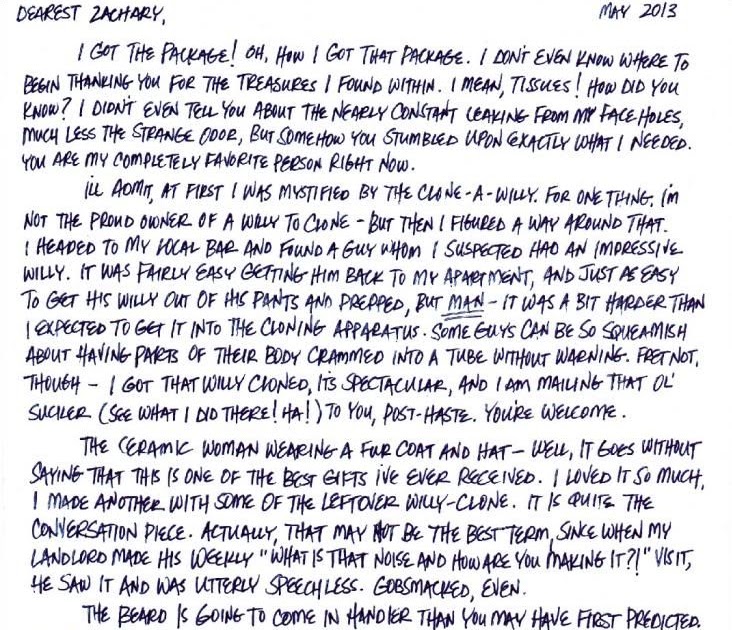 DEAREST ZACHARY, MAY 2013
I GOT THE PACKAGE! OH, HOW I GOT THAT PACKAGE. I DON'T EVEN KNOW WHERE TO
BEGIN THANKING YOU FOR THE TREASURES I FOUND WITHIN. I MEAN, TISSUES! HOW DID YOU
KNOW? I DIDN'T EVEN TELL YOU ABOUT THE NEARLY CONSTANT LEAKING FROM MY FACE HOLES,
MUCH LESS THE STRANGE ODOR, BUT SOMEHOW YOU STUMBLED UPON EXACTLY WHAT I NEEDED.
YOU ARE MY COMPLETELY FAVORITE PERSON RIGHT NOW.
I'LL ADMIT, AT FIRST I WAS MYSTIFIED BY THE CLONE-A-WILLY. FOR ONE THING, I'M
NOT THE PROUD OWNER OF A WILLY TO CLONE - BUT THEN I FIGURED A WAY AROUND THAT.
I HEADED TO MY LOCAL BAR AND FOUND A GUY WHOM I SUSPECTED HAD AN IMPRESSIVE
WILLY. IT WAS FAIRLY EASY GETTING HIM BACK TO MY APARTMENT, AND JUST AS EASY
TO GET HIS WILLY OUT OF HIS PANTS AND PREPPED, BUT MAN - IT WAS A BIT HARDER THAN
I EXPECTED TO GET IT INTO THE CLONING APPARATUS. SOME GUYS CAN BE SO SQUEAMISH
ABOUT HAVING PARTS OF THEIR BODY CRAMMED INTO A TUBE WITHOUT WARNING. FRET NOT,
THOUGH - I GOT THAT WILLY CLONED, ITS SPECTACULAR, AND I AM MAILING THAT OL'
SUCKER (SEE WHAT I DID THERE! HA!) TO YOU, POST-HASTE. YOU'RE WELCOME.
THE CERAMIC WOMAN WEARING A FUR COAT AND HAT - WELL, IT GOES WITHOUT
SAYING THAT THIS IS ONE OF THE BEST GIFTS I'VE EVER RECEIVED. I LOVED IT SO MUCH,
I MADE ANOTHER WITH SOME OF THE LEFTOVER WILLY-CLONE. IT IS QUITE THE
CONVERSATION PIECE. ACTUALLY, THAT MAY NOT BE THE BEST TERM, SINCE WHEN MY
LANDLORD MADE HIS WEEKLY "WHAT IS THAT NOISE AND HOW ARE YOU MAKING IT?!" VISIT,
HE SAW IT AND WAS UTTERLY SPEECHLESS. GOBSMACKED, EVEN.
THE BEARD IS GOING TO COME IN HANDIER THAN YOU MAY HAVE FIRST PREDICTED.